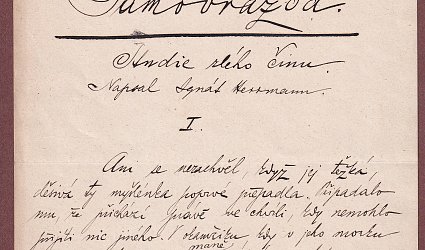 Samovražda.
Studie zlého činu.
Napsal Ignát Herrmann.
I.
Ani se nezachvěl, když jej těžká,
děsivá ty myšlénka poprve přepadla. Připadalo
mu, že přichází právě ve chvíli, kdy nemohlo
přijíti nic jiného. V okamžiku kdy v jeho mozku